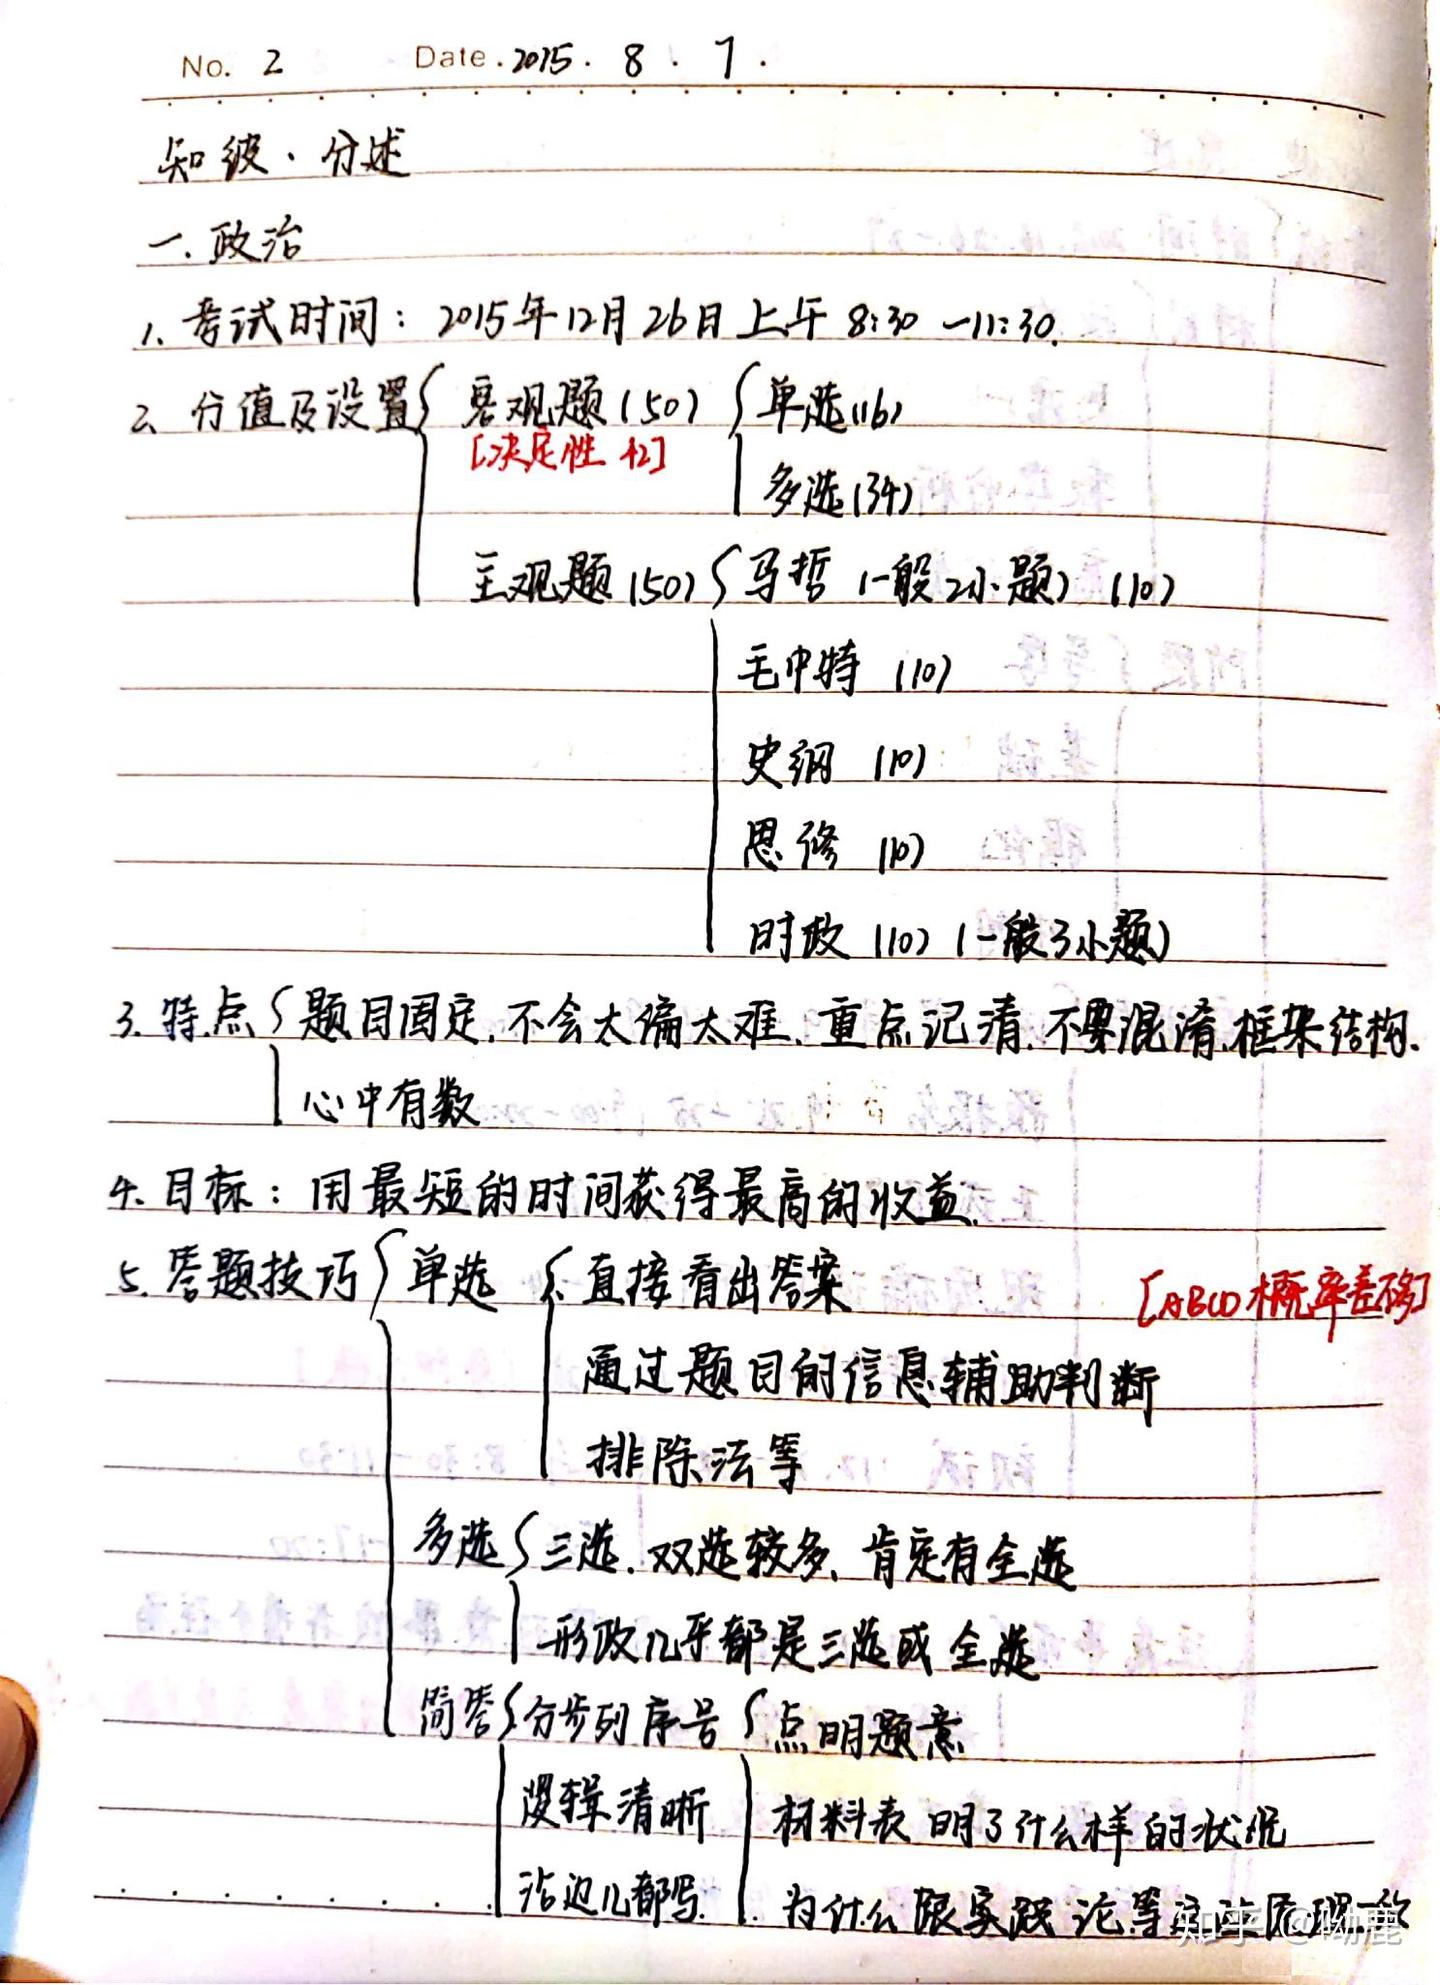 No. 2 Date. 2015. 8. 7.
知彼·分述
一.政治
1. 考试时间: 2015年12月26日上午 8:30 —11:30.
2. 分值及设置 客观题(50) 单选(16)
[决定性 42]
多选(34)
主观题(50) 马哲 (一般2小题) (10)
毛中特 (10)
史纲 (10)
思修 (10)
时政 (10) (一般3小题)
3. 特点 题目固定.不会太偏太难、重点记清.不要混淆.框架结构.
心中有数
4. 目标: 用最短的时间获得最高的收益.
5. 答题技巧 单选 直接看出答案 [ABCD概率差不多]
通过题目的信息辅助判断
排除法等
多选 三选.双选较多、肯定有全选
形政几乎都是三选或全选
简答 分步列序号 点明题意
逻辑清晰 材料表明了什么样的状况
沾边儿都写. 为什么跟实践论等
知乎 @呦鹿